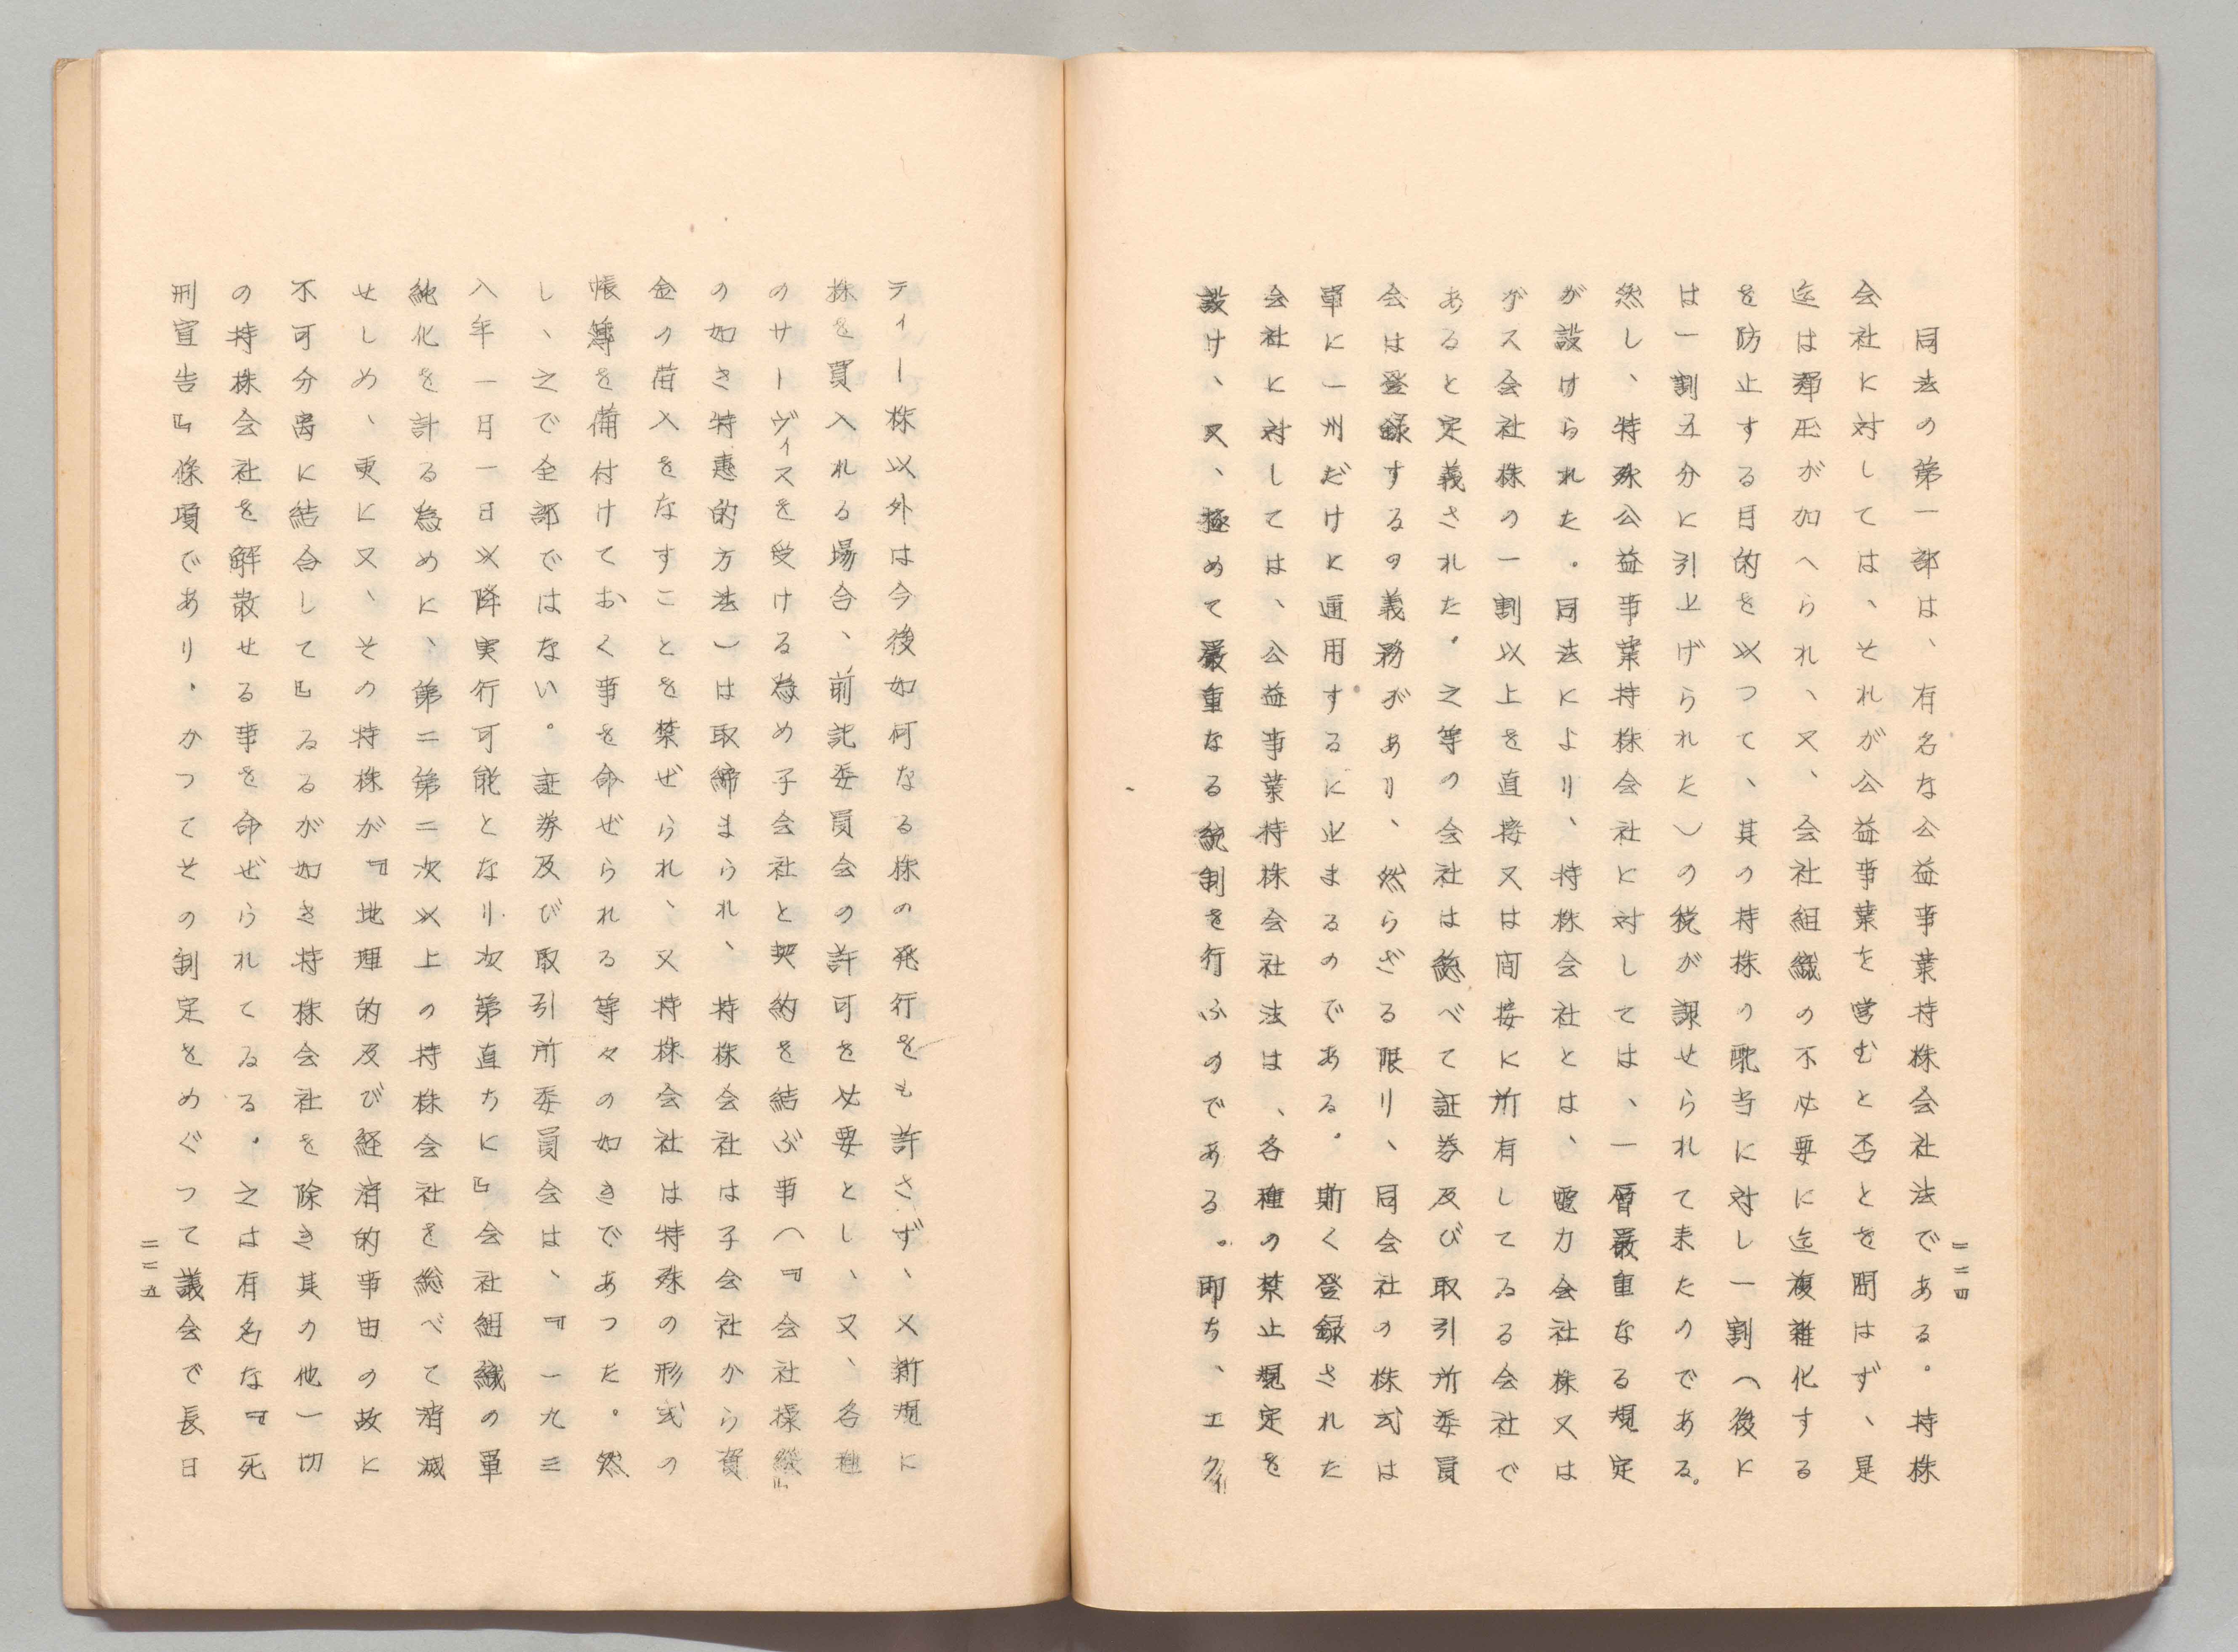 二二四
同法の第一部は、有名な公益事業持株会社法である。持株
会社に対しては、それが公益事業を営むと否とを問はず、是
迄は弾圧が加へられ、又、会社組織の不必要に迄複雑化する
を防止する目的を以つて、其の持株の配当に対し一割(後に
は一割五分に引上げられた)の税が課せられて来たのである。
然し、特殊公益事業持株会社に対しては、一層厳重なる規定
が設けられた。同法により、持株会社とは、電力会社株又は
ガス会社株の一割以上を直接又は間接に所有してゐる会社で
あると定義された。之等の会社は総べて証券及び取引所委員
会は登録するの義務があり、然らざる限り、同会社の株式は
単に一州だけに通用するに止まるのである。斯く登録された
会社に対しては、公益事業持株会社法は、各種の禁止規定を
設け、又、極めて厳重なる統制を行ふのである。即ち、エクイ
ティー株以外は今後如何なる株の発行をも許さず、又新規に
株を買入れる場合、前記委員会の許可を必要とし、又、各種
のサーヴィスを受ける為め子会社と契約を結ぶ事(『会社操縦』
の如き特恵的方法)は取締まられ、持株会社は子会社から資
金の借入をなすことを禁ぜられ、又持株会社は特殊の形式の
帳簿を備付けておく事を命ぜられる等々の如きであつた。然
し、之で全部ではない。証券及び取引所委員会は、『一九三
八年一日一日以降実行可能となり次第直ちに』会社組織の単
純化を計る為めに、第二第二次以上の持株会社を総べて消滅
せしめ、更に又、その持株が『地理的及び経済的事由の故に
不可分离に結合して』ゐるが如き持株会社を除き其の他一切
の持株会社を解散せる事を命ぜられてゐる。之は有名な『死
刑宣告』條項であり、かつてその制定をめぐつて議会で長日
二二五